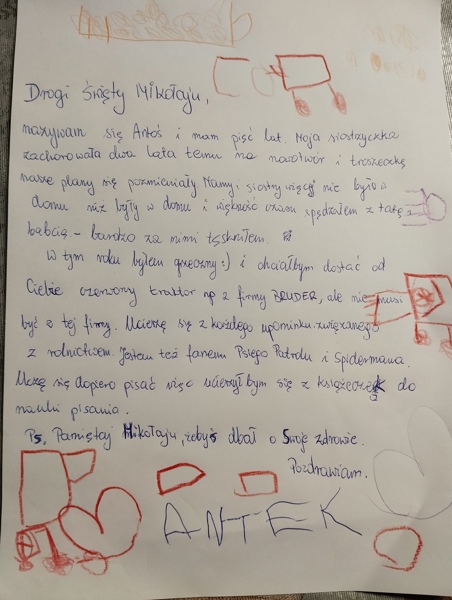 Drogi Święty Mikołaju,
nazywam się Antoś i mam pięć lat. Moja siostrzyczka
zachorowała dwa lata temu na nowotwór i troszeczkę
nasze plany się pozmieniały Mamy i siostry więcej nie było w
domu niż były w domu i większość czasu spędzałem z tatą i
babcią - bardzo za nimi tęskniłem.
W tym roku byłem grzeczny :) i chciałbym dostać od
Ciebie czerwony traktor np z firmy BRUDER, ale nie musi
być z tej firmy. Ucieszę się z każdego upominku związanego
z rolnictwem. Jestem też fanem Psiego Patrolu i Spidermana.
Uczę się dopiero pisać więc ucieszyłbym się z książeczek do
nauki pisania.
Ps. Pamiętaj Mikołaju, żebyś dbał o Swoje zdrowie.
Pozdrawiam.
ANTEK